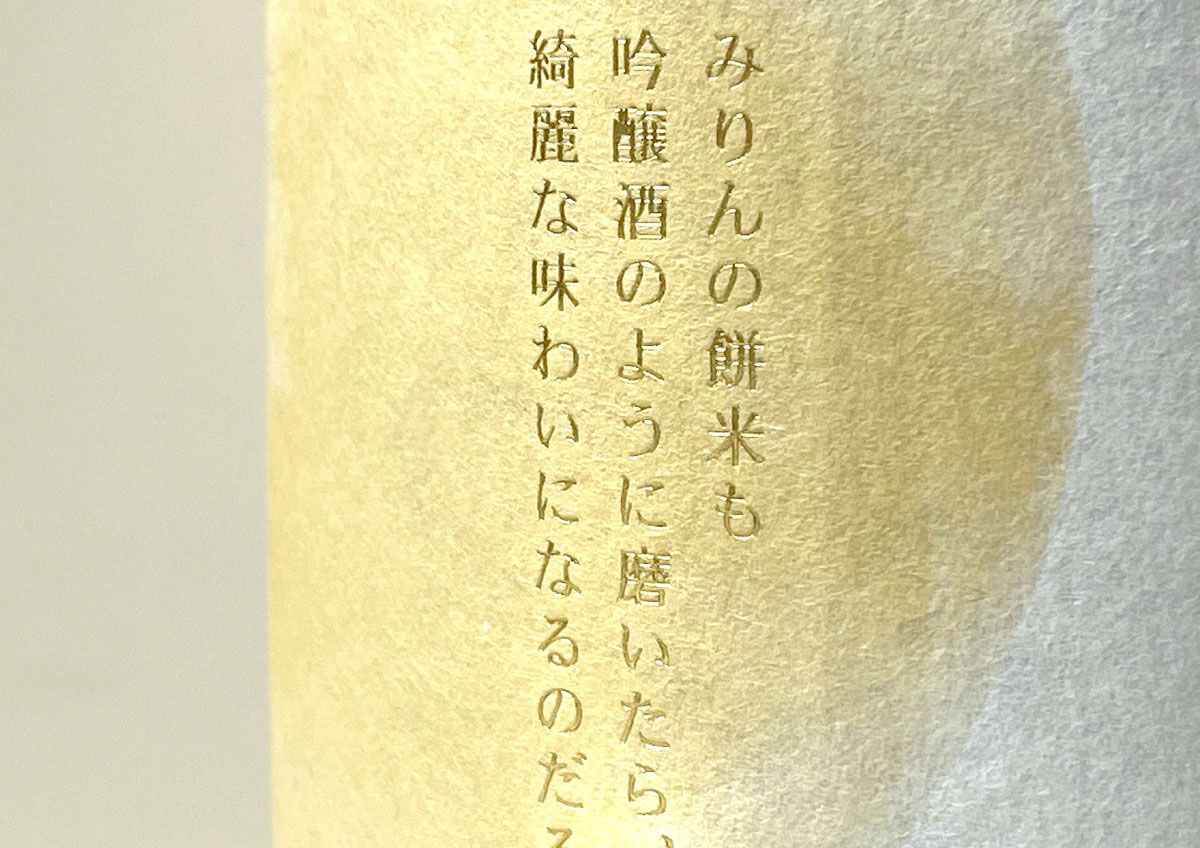 みりんの餅米も
吟醸酒のように磨いたら、
綺麗な味わいになるのだろ